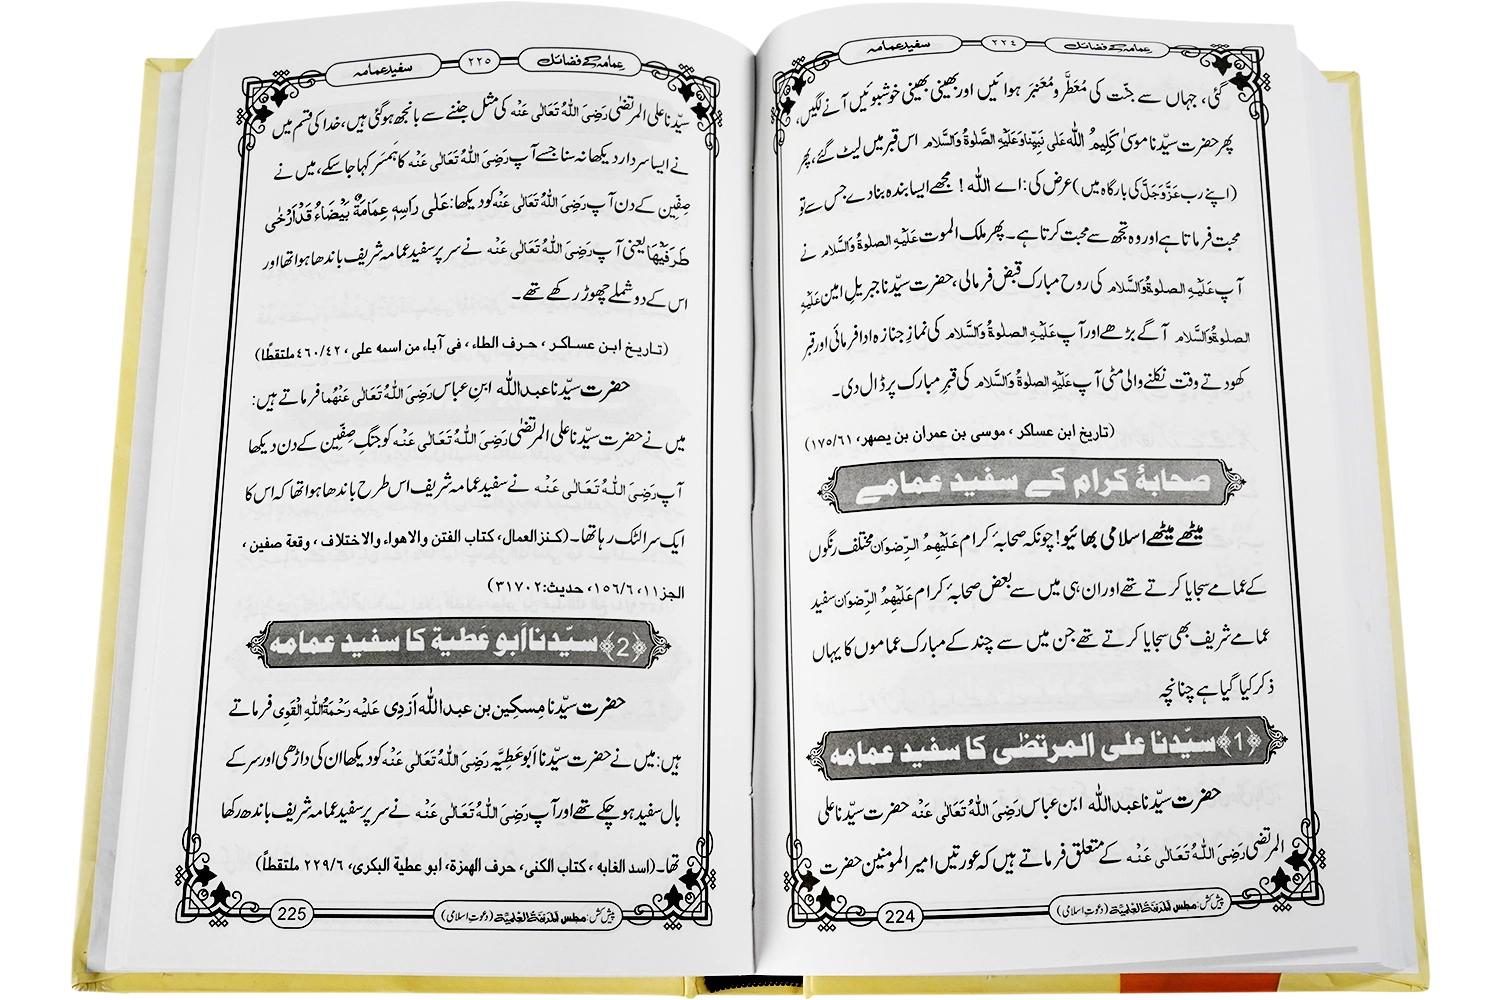 عمامہ کے فضائل
٢٢٤
سفید عمامہ
گئی، جہاں سے جنّت کی مُعَطَّر و مُعَنبر ہوائیں اور بھینی بھینی خوشبوئیں آنے لگیں،
پھر حضرت سیّدنا موسیٰ کَلِیمُ اللّٰہ عَلٰی نَبِیِّنَا وَعَلَیْہِ الصَّلٰوۃُ وَالسَّلَام اس قبر میں لیٹ گئے، پھر
(اپنے رب عَزَّوَجَلَّ کی بارگاہ میں) عرض کی: اے اللّٰہ! مجھے ایسا بندہ بنا دے جس سے تو
محبت فرماتا ہے اور وہ تجھ سے محبت کرتا ہے۔ پھر ملک الموت عَلَیْہِ الصلوۃُ وَالسَّلَام نے
آپ عَلَیْہِ الصلوۃُ وَالسَّلَام کی روح مبارک قبض فرمالی، حضرت سیّدنا جبریلِ امین عَلَیْہِ
الصلوۃُ وَالسَّلَام آگے بڑھے اور آپ عَلَیْہِ الصلوۃُ وَالسَّلَام کی نمازِ جنازہ ادا فرمائی اور قبر
کھودتے وقت نکلنے والی مٹی آپ عَلَیْہِ الصلوۃُ وَالسَّلَام کی قبرِ مبارک پر ڈال دی۔
(تاریخ ابن عساکر، موسی بن عمران بن یصھر، ٦١/١٧٥)
صحابۂ کرام کے سفید عمامے
میٹھے میٹھے اسلامی بھائیو! چونکہ صحابۂ کرام عَلَیْہِمُ الرِّضْوَان مختلف رنگوں
کے عمامے سجایا کرتے تھے اور ان ہی میں سے بعض صحابۂ کرام عَلَیْہِمُ الرِّضْوَان سفید
عمامے شریف بھی سجایا کرتے تھے جن میں سے چند کے مبارک عماموں کا یہاں
ذکر کیا گیا ہے چنانچہ
﴿1﴾ سیّدنا علی المرتضٰی کا سفید عمامہ
حضرت سیّدنا عبداللّٰہ ابن عباس رَضِیَ اللّٰہُ تَعَالٰی عَنْہ حضرت سیّدنا علی
المرتضی رَضِیَ اللّٰہُ تَعَالٰی عَنْہ کے متعلق فرماتے ہیں کہ عورتیں امیر المومنین حضرت
پیش کش: مجلس المدینۃ العلمیۃ (دعوتِ اسلامی)
224
عمامہ کے فضائل
٢٢٥
سفید عمامہ
سیّدنا علی المرتضیٰ رَضِیَ اللّٰہُ تَعَالٰی عَنْہ کی مثل جننے سے بانجھ ہوگئی ہیں، خدا کی قسم میں
نے ایسا سردار دیکھا نہ سنا جسے آپ رَضِیَ اللّٰہُ تَعَالٰی عَنْہ کا ہَمسَر کہا جا سکے، میں نے
صِفِّین کے دن آپ رَضِیَ اللّٰہُ تَعَالٰی عَنْہ کو دیکھا: عَلٰی رَاسِہٖ عِمَامَۃٌ بَیْضَاءُ قَدْ اَرْخٰی
طَرَفَیْھَا یعنی آپ رَضِیَ اللّٰہُ تَعَالٰی عَنْہ نے سر پر سفید عمامہ شریف باندھا ہوا تھا اور
اس کے دو شملے چھوڑ رکھے تھے۔
(تاریخ ابن عساکر، حرف الطاء، فی آباء من اسمہ علی، ٤٢/٤٦٠ ملتقطًا)
حضرت سیّدنا عبداللّٰہ ابنِ عباس رَضِیَ اللّٰہُ تَعَالٰی عَنْہُمَا فرماتے ہیں:
میں نے حضرت سیّدنا علی المرتضٰی رَضِیَ اللّٰہُ تَعَالٰی عَنْہ کو جنگِ صِفِّین کے دن دیکھا
آپ رَضِیَ اللّٰہُ تَعَالٰی عَنْہ نے سفید عمامہ شریف اس طرح باندھا ہوا تھا کہ اس کا
ایک سرا لٹک رہا تھا۔ (کنز العمال، کتاب الفتن والاھواء والاختلاف، وقعۃ صفین،
الجز١١، ٦/١٥٦، حدیث:٣١٧٠٢)
﴿2﴾ سیّدنا اَبو عَطیۃ کا سفید عمامہ
حضرت سیّدنا مِسکِین بن عبداللّٰہ اَزدِی عَلَیْہ رَحْمَۃُاللّٰہِ الْقَوِی فرماتے
ہیں: میں نے حضرت سیّدنا اَبو عَطِیَّہ رَضِیَ اللّٰہُ تَعَالٰی عَنْہ کو دیکھا ان کی داڑھی اور سر کے
بال سفید ہو چکے تھے اور آپ رَضِیَ اللّٰہُ تَعَالٰی عَنْہ نے سر پر سفید عمامہ شریف باندھ رکھا
تھا۔ (اسد الغابہ، کتاب الکنی، حرف الھمزۃ، ابو عطیۃ البکری، ٦/٢٢٩ ملتقطاً)
پیش کش: مجلس المدینۃ العلمیۃ (دعوتِ اسلامی)
225